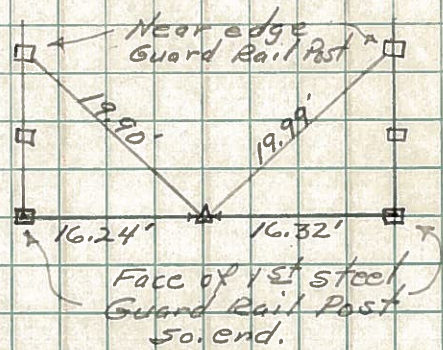 Near edge
Guard Rail Post
19.90'
19.99'
16.24'
16.32'
Face of 1st steel
Guard Rail Post
so. end.